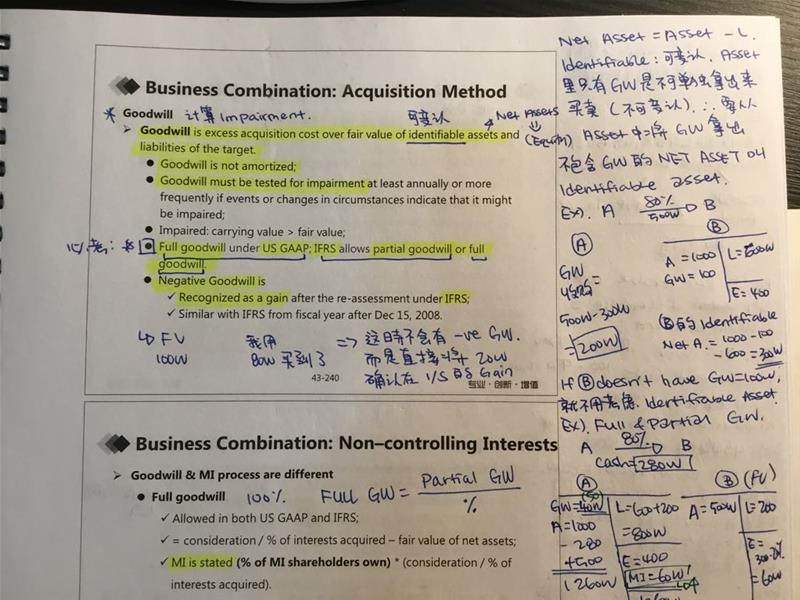 Business Combination: Acquisition Method
* Goodwill 计算 Impairment. 可辨认 Net Assets
➢ Goodwill is excess acquisition cost over fair value of identifiable assets and
(Equity)
liabilities of the target.
● Goodwill is not amortized;
● Goodwill must be tested for impairment at least annually or more
frequently if events or changes in circumstances indicate that it might
be impaired;
● Impaired: carrying value > fair value;
必考: * ● Full goodwill under US GAAP; IFRS allows partial goodwill or full
goodwill.
● Negative Goodwill is
✓ Recognized as a gain after the re-assessment under IFRS;
✓ Similar with IFRS from fiscal year after Dec 15, 2008.
↳ FV 我用 => 这时不会有 -ve GW.
100W 80W 买到了 而是直接将 20W
确认在 I/S 的 Gain
43-240
专业·创新·增值
Business Combination: Non–controlling Interests
➢ Goodwill & MI process are different
● Full goodwill 100% FULL GW = Partial GW / %
✓ Allowed in both US GAAP and IFRS;
✓ = consideration / % of interests acquired – fair value of net assets;
✓ MI is stated (% of MI shareholders own) * (consideration / % of
interests acquired).
Net Asset = Asset - L.
Identifiable: 可辨认. Asset
里只有 GW 是不可单独拿出来
买卖 (不可辨认). ∴ 要从
Asset 中将 GW 拿出
不包含 GW 的 NET ASET 叫
Identifiable asset.
Ex). A 80% 500W → B
Ⓐ Ⓑ
A = 1000 L=600W
GW = 100
E = 400
GW
收购 =
500W-300W
= 200W
Ⓑ的 Identifiable
Net A. = 1000-100
-600 = 300W
If Ⓑ doesn't have GW=100W,
就不用考虑. Identifiable Asset.
Ex). Full & Partial GW.
A 80% → B
Cash = 280W
Ⓐ Ⓑ (FV)
GW=40W (50) L=600+200
A=1000 =800W
-280 E=400
+500 MI=60W
1260W
A=500W L=200
E=
=60W